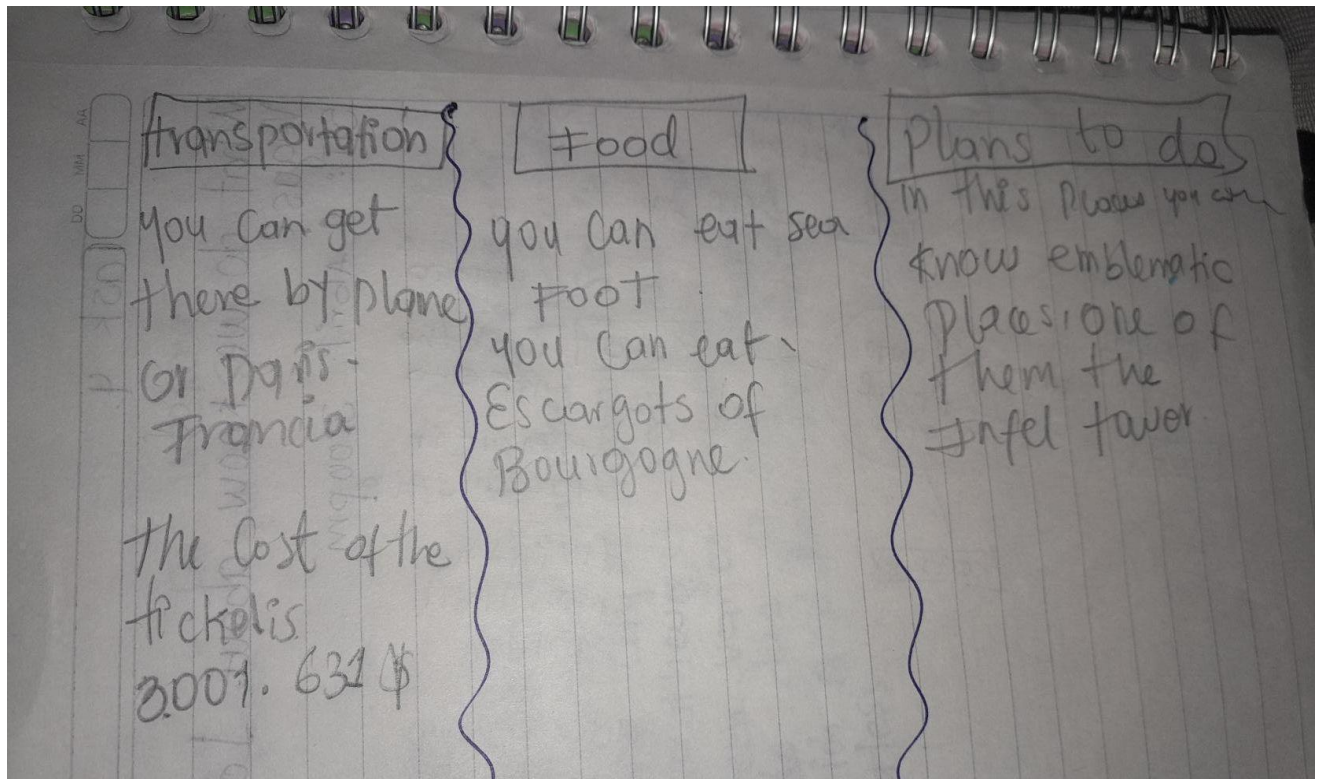 transportation
you can get
there by plane
or Paris-
Francia
the Cost of the
ticket is
3.001.631 $
Food
you can eat sea
FOOT.
you can eat
Escargots of
Bourgogne.
Plans to do
In this places you can
know emblematic
places, one of
them the
Infel tower.
AA
MM
DD